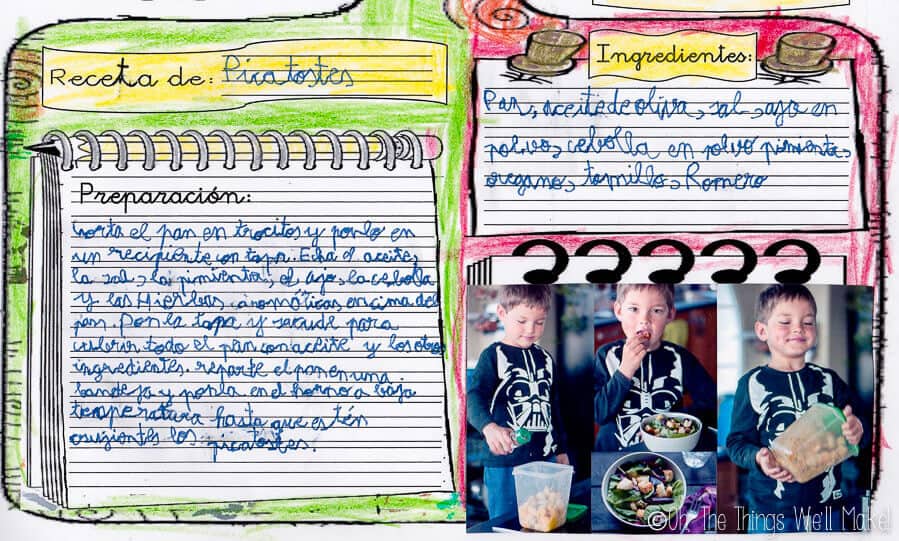 Receta de: Picatostes
Preparación:
Corta el pan en trocitos y ponlo en
un recipiente con tapa. Echa el aceite,
la sal, la pimienta, el ajo, la cebolla
y las Hierbas aromáticas, encima del
pan. Pon la tapa y sacude para
cubrir todo el pan con aceite y los otros
ingredientes. reparte el pan en una
bandeja y ponla en el horno a baja
temperatura hasta que estén
crujientes los picatostes.
Ingredientes:
Pan, aceite de oliva, sal, ajo en
polvo, cebolla en polvo pimienta,
oregano, tomillo, Romero
©Oh, The Things We'll Make!